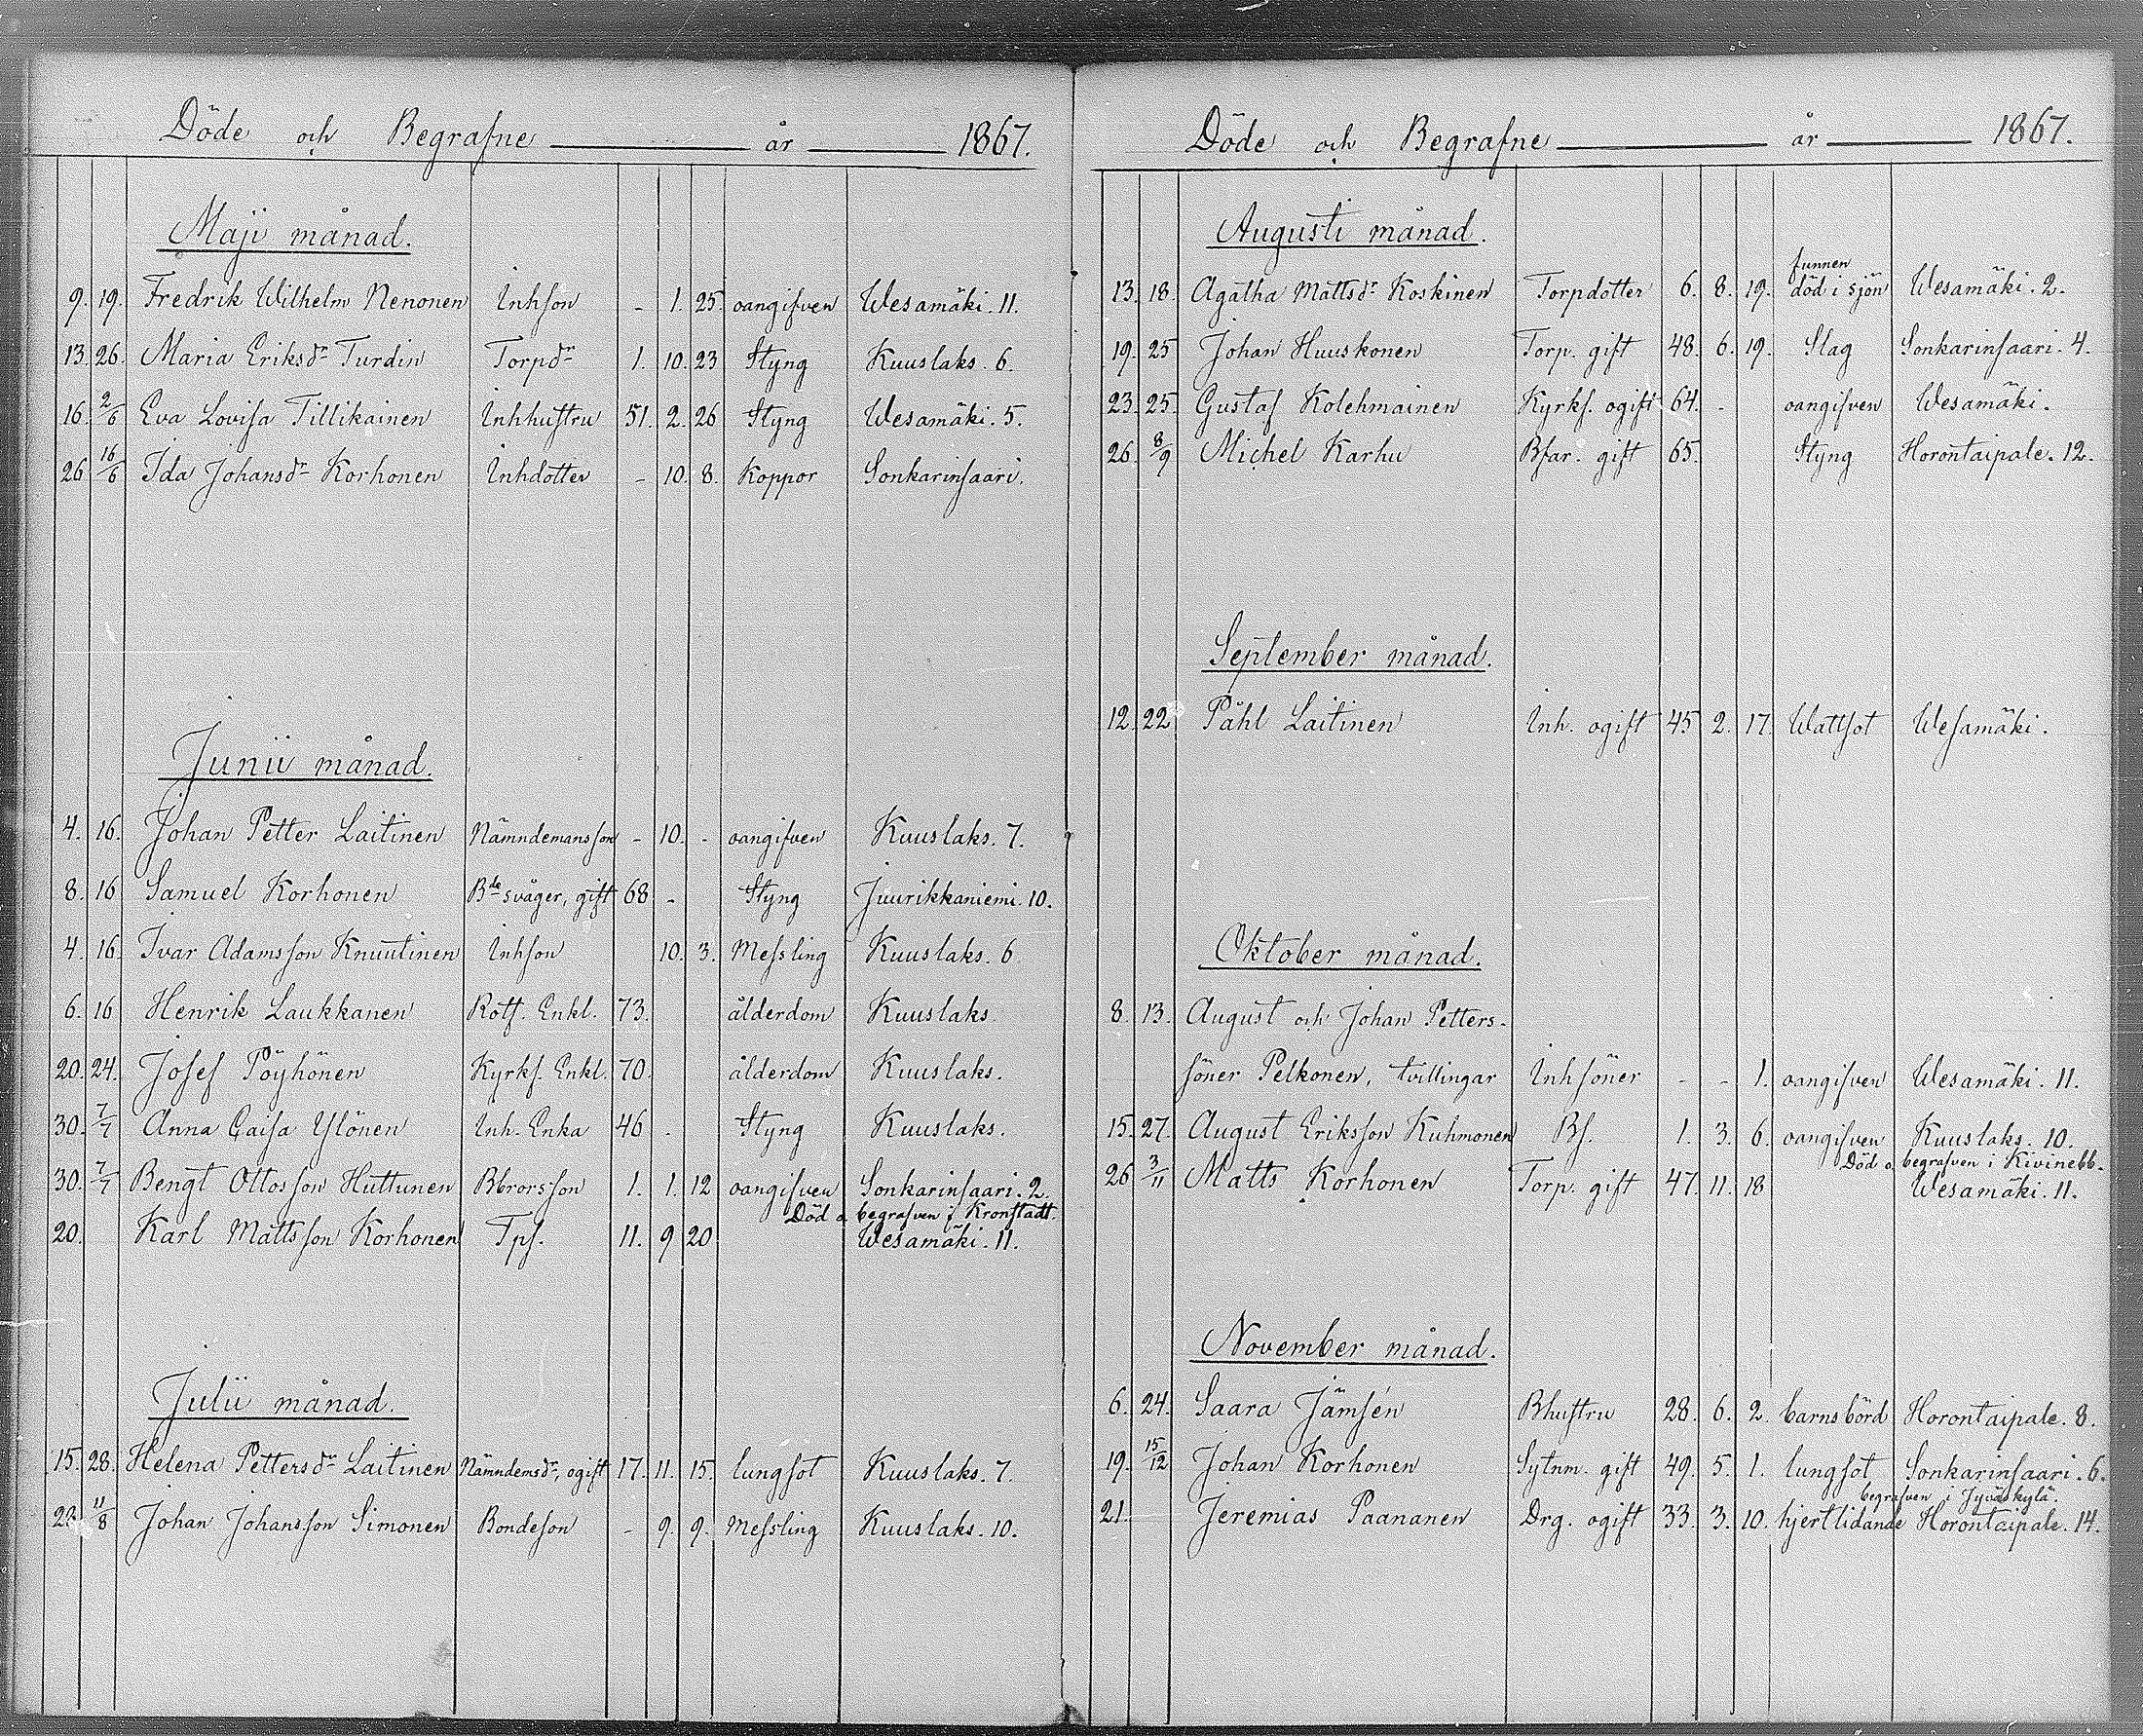 Döde och Begrafne år 1867.
Maji månad.
9. 19. Fredrik Wilhelm Nenonen Inhson - 1. 25. oangifven Wesamäki. 11.
13. 26. Maria Eriksdr Turdin Torpdr 1. 10. 23 Styng Kuuslaks. 6.
16. 2/6 Eva Lovisa Tillikainen Inhhustru 51. 2. 26 Styng Wesamäki. 5.
26 16/6 Ida Johansdr Korhonen Inhdotter - 10. 8. Koppor Sonkarinsaari.
Junii månad.
4. 16. Johan Petter Laitinen Nämndemansson - 10. - oangifven Kuuslaks. 7.
8. 16 Samuel Korhonen Bde svåger, gift 68 - Styng Juurikkaniemi. 10.
4. 16. Ivar Adamsson Knuutinen Inhson 10. 3. Messling Kuuslaks. 6
6. 16 Henrik Laukkanen Rotf. Enkl. 73. ålderdom Kuuslaks
20. 24. Josef Pöyhönen Kyrkf. Enkl. 70. ålderdom Kuuslaks.
30. 7/7 Anna Caisa Ylönen Inh. Enka 46 - Styng Kuuslaks.
30. 7/7 Bengt Ottosson Huttunen Bbrorsson 1. 1. 12 oangifven Sonkarinsaari. 2.
Död o begrafven i Kronstadt.
20. Karl Mattsson Korhonen Tps. 11. 9 20 Wesamäki. 11.
Julii månad.
15. 28. Helena Pettersdr Laitinen Nämndemsdr, ogift 17. 11. 15. lungsot Kuuslaks. 7.
28 11/8 Johan Johansson Simonen Bondeson - 9. 9. Messling Kuuslaks. 10.
Döde och Begrafne år 1867.
Augusti månad.
funnen
13. 18. Agatha Mattsdr Koskinen Torpdotter 6. 8. 19. död i sjön Wesamäki. 2.
19. 25 Johan Huuskonen Torp. gift 48. 6. 19. Slag Sonkarinsaari. 4.
23. 25. Gustaf Kolehmainen Kyrkf. ogift 64. - oangifven Wesamäki.
26. 8/9 Michel Karhu Bfar. gift 65. Styng Horontaipale. 12.
September månad.
12. 22 Påhl Laitinen Inh. ogift 45 2. 17. Wattsot Wesamäki.
Oktober månad.
8. 13. August och Johan Petters-
söner Pelkonen, tvillingar Inhsöner - - 1. oangifven Wesamäki. 11.
15. 27. August Eriksson Kuhmonen Bs. 1. 3. 6. oangifven Kuuslaks. 10.
Död o begrafven i Kivinebb.
26 3/11 Matts Korhonen Torp. gift 47. 11. 18. Wesamäki. 11.
November månad.
6. 24. Saara Jämsén Bhustru 28. 6. 2. barnsbörd Horontaipale. 8.
19. 15/12 Johan Korhonen Sytnm. gift 49. 5. 1. lungsot Sonkarinsaari. 6.
begrafven i Jyväskylä.
21. Jeremias Paananen Drg. ogift 33. 3. 10. hjertlidande Horontaipale. 14.